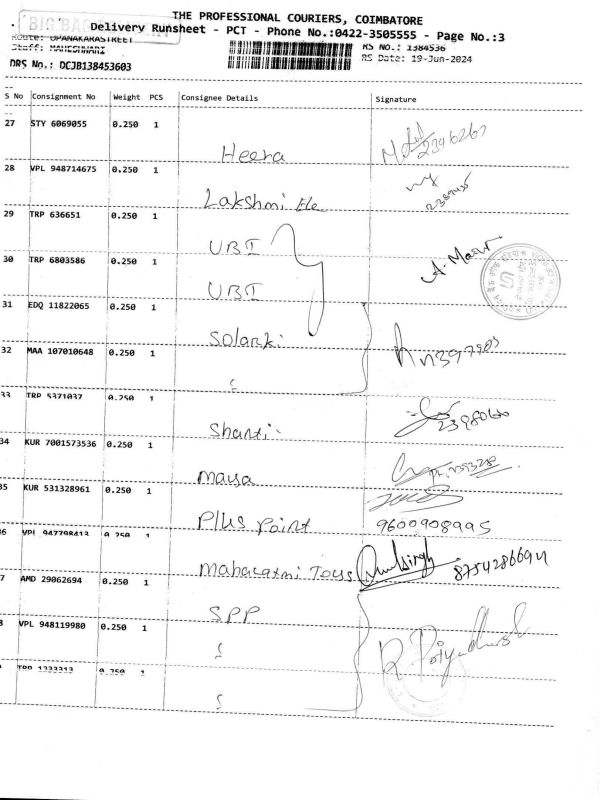 THE PROFESSIONAL COURIERS, COIMBATORE
Delivery Runsheet - PCT - Phone No.:0422-3505555 - Page No.:3
Route: OPANAKARASTREET
Staff: MAHESHWARI
RS No.: 1384536
DRS No.: DCJB138453603
RS Date: 19-Jun-2024
S No Consignment No Weight PCS Consignee Details Signature
27 STY 6069055 0.250 1
Heera 2346267
28 VPL 948714675 0.250 1
Lakshmi Ele
29 TRP 636651 0.250 1
UBI
30 TRP 6803586 0.250 1
UBI
31 EDQ 11822065 0.250 1
Solanki
32 MAA 107010648 0.250 1
33 TRP 5371037 0.250 1
Shanti 2398060
34 KUR 7001573536 0.250 1
maya
35 KUR 531328961 0.250 1
Plus Point 9600908995
36 VPL 947798413 0.250 1
Mahalaxmi Toys 8754286694
37 AMD 29062694 0.250 1
SPP
38 VPL 948119980 0.250 1
TRP 1333313 0.250 1